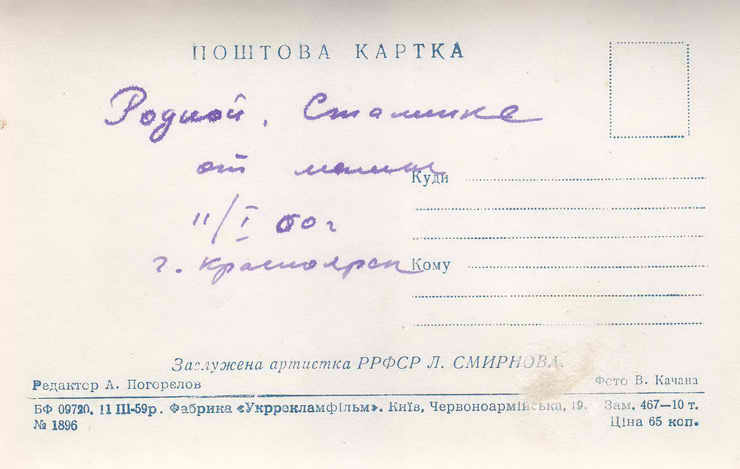 ПОШТОВА КАРТКА
Родной, Сталинке
от мамы
11/I 60 г
г. Красноярск
Куди
Кому
Заслужена артистка РРФСР Л. СМИРНОВА.
Редактор А. Погорєлов
Фото В. Качана
БФ 09720. 11 III-59р. Фабрика «Укррекламфільм». Київ, Червоноармійська, 19. Зам. 467—10 т.
№ 1896
Ціна 65 коп.